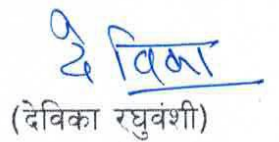 देविका
(देविका रघुवंशी)